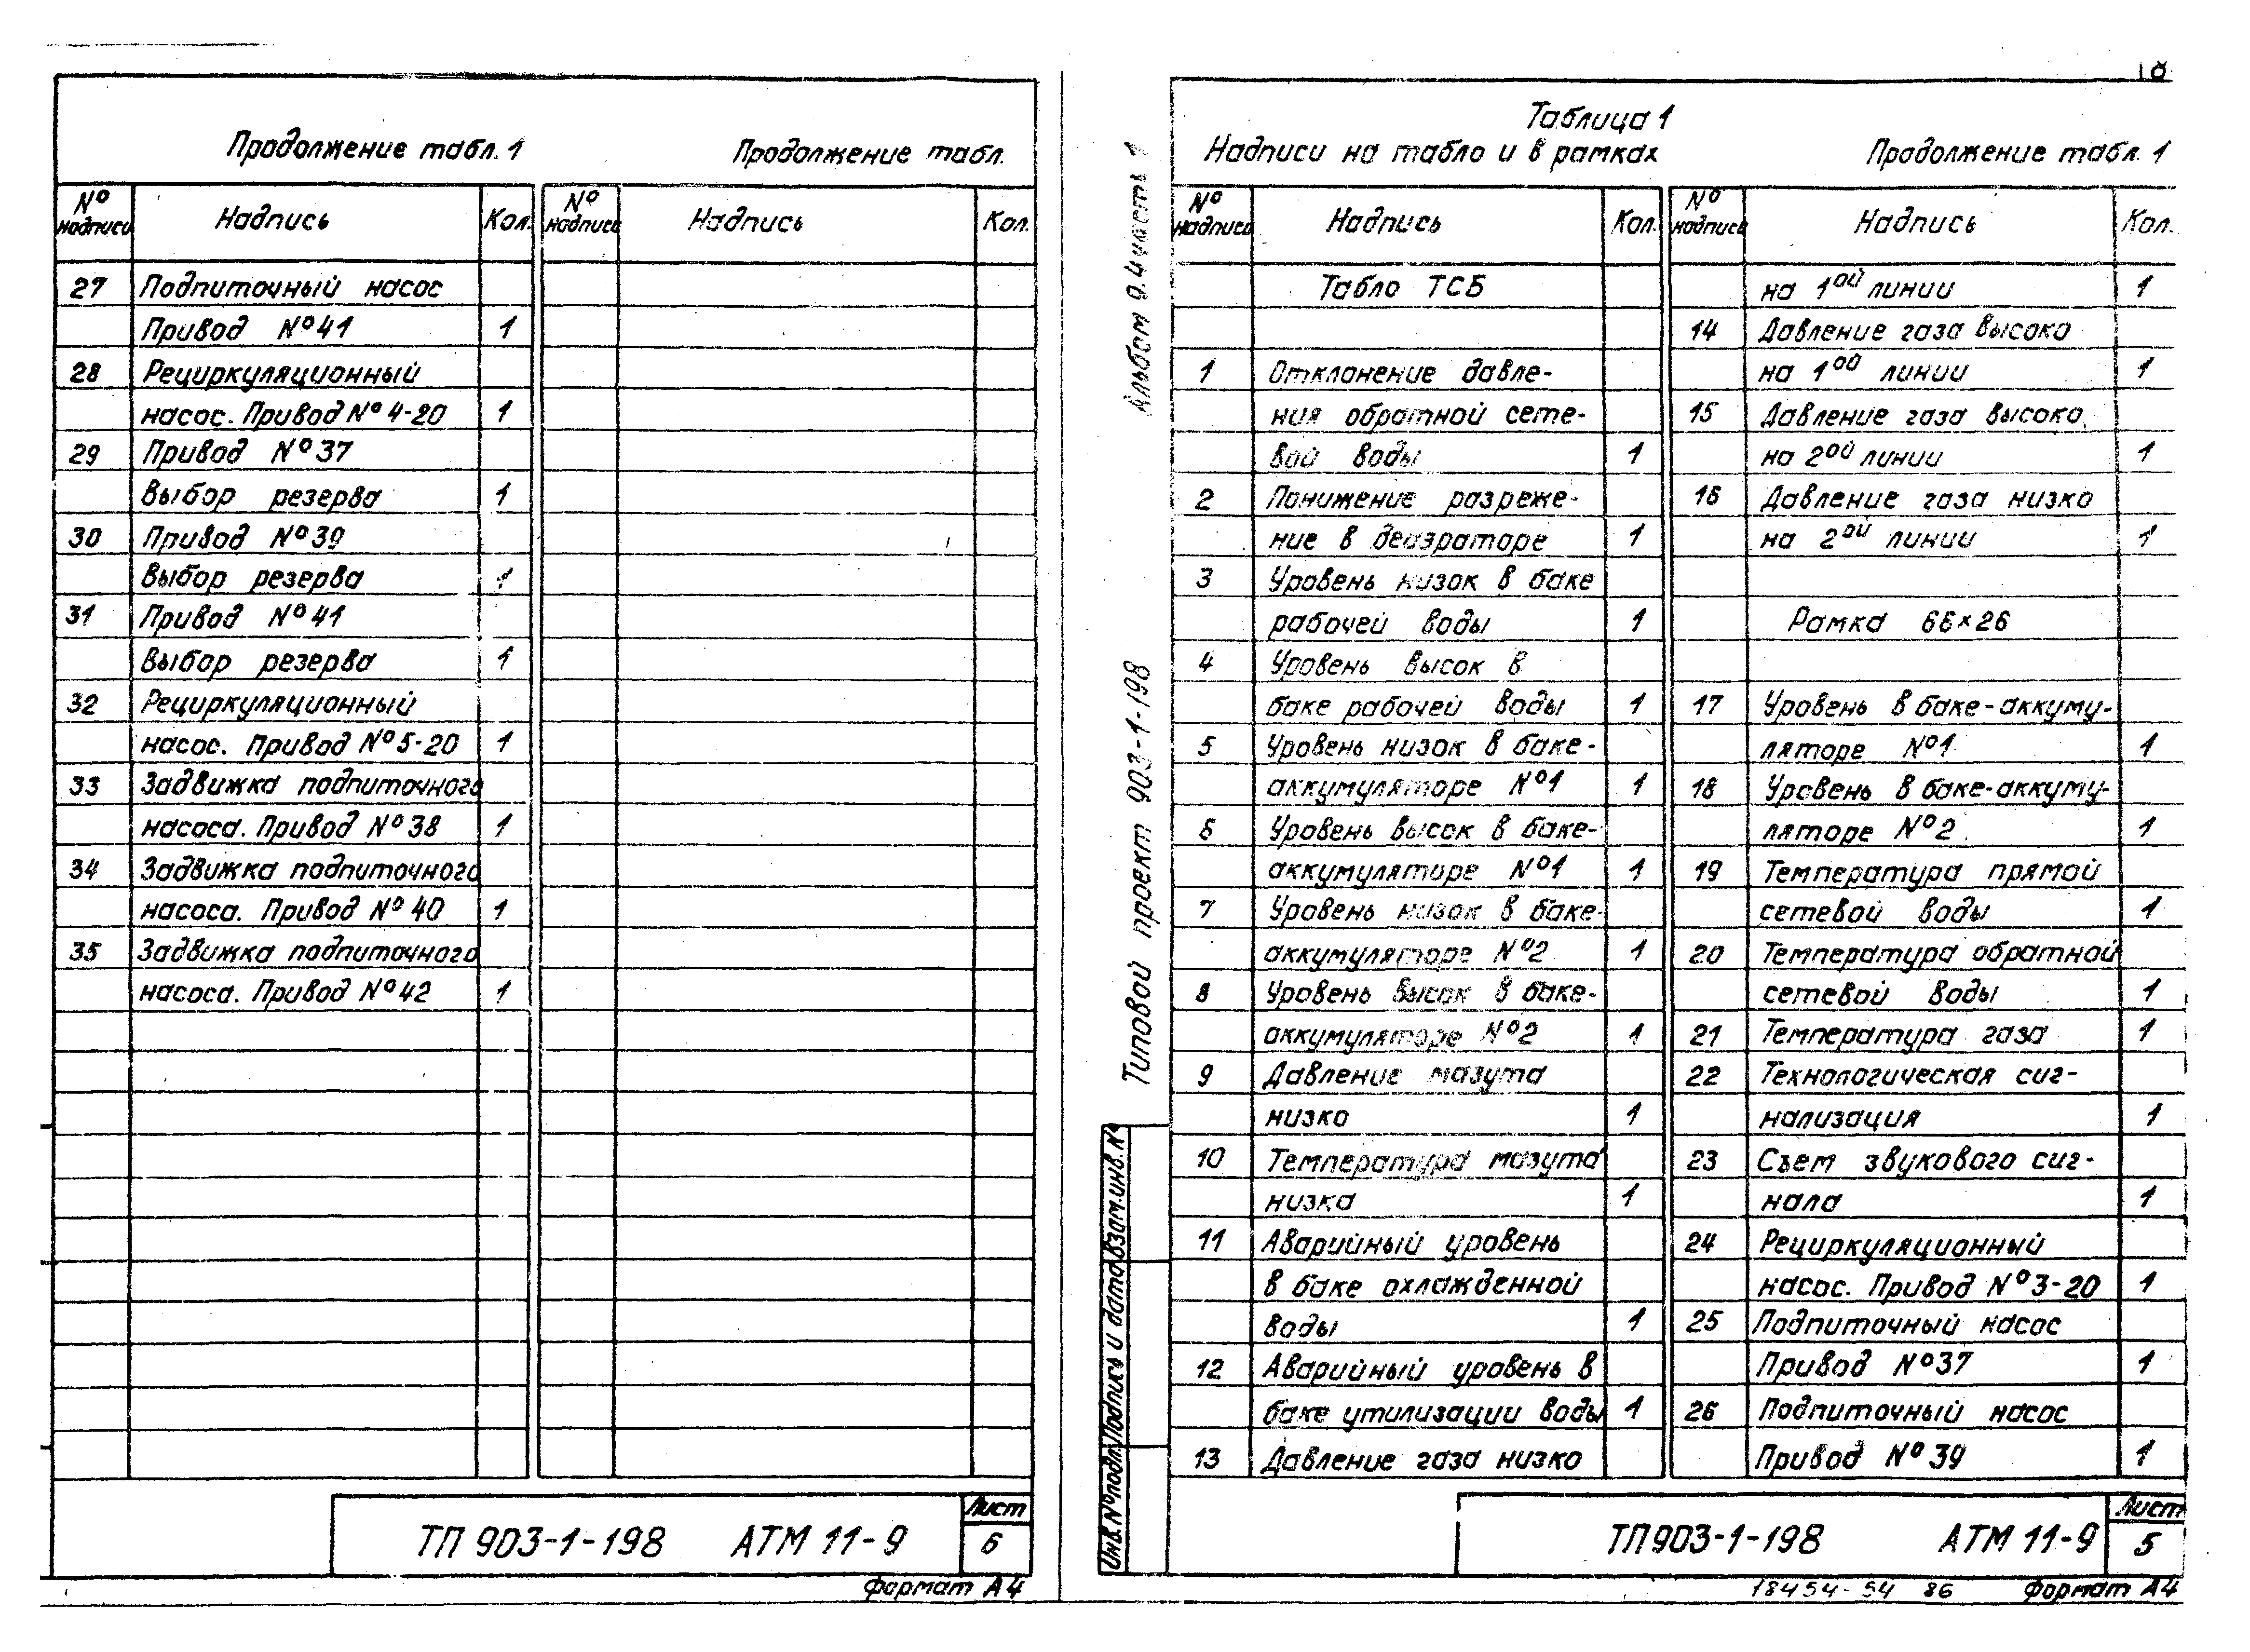 Продолжение табл. 1
Продолжение табл.
№ надписи Надпись Кол. № надписи Надпись Кол.
27 Подпиточный насос
Привод №41 1
28 Рециркуляционный
насос. Привод № 4-20 1
29 Привод №37
Выбор резерва 1
30 Привод №39
Выбор резерва 1
31 Привод №41
Выбор резерва 1
32 Рециркуляционный
насос. Привод №5-20 1
33 Задвижка подпиточного
насоса. Привод №38 1
34 Задвижка подпиточного
насоса. Привод № 40 1
35 Задвижка подпиточного
насоса. Привод №42 1
ТП 903-1-198 АТМ 11-9
Лист
6
Формат А4
18
Альбом 9.4 часть 1
Типовой проект 903-1-198
Инв.№подл. Подпись и дата Взам.инв.№
Таблица 1
Надписи на табло и в рамках
№ надписи Надпись Кол.
Табло ТСБ
1 Отклонение давле-
ния обратной сете-
вой воды 1
2 Понижение разреже-
ние в деаэраторе 1
3 Уровень низок в баке
рабочей воды 1
4 Уровень высок в
баке рабочей воды 1
5 Уровень низок в баке-
аккумуляторе №1 1
6 Уровень высок в баке-
аккумуляторе №1 1
7 Уровень низок в баке-
аккумуляторе №2 1
8 Уровень высок в баке-
аккумуляторе №2 1
9 Давление мазута
низко 1
10 Температура мазута
низка 1
11 Аварийный уровень
в баке охлажденной
воды 1
12 Аварийный уровень в
баке утилизации воды 1
13 Давление газа низко
Продолжение табл. 1
№ надписи Надпись Кол.
на 1ой линии 1
14 Давление газа высоко
на 1ой линии 1
15 Давление газа высоко
на 2ой линии 1
16 Давление газа низко
на 2ой линии 1
Рамка 66×26
17 Уровень в баке-аккуму-
ляторе №1 1
18 Уровень в баке-аккуму-
ляторе №2 1
19 Температура прямой
сетевой воды 1
20 Температура обратной
сетевой воды 1
21 Температура газа 1
22 Технологическая сиг-
нализация 1
23 Съем звукового сиг-
нала 1
24 Рециркуляционный
насос. Привод №3-20 1
25 Подпиточный насос
Привод №37 1
26 Подпиточный насос
Привод №39 1
ТП903-1-198 АТМ 11-9
Лист
5
18454-54 86 Формат А4